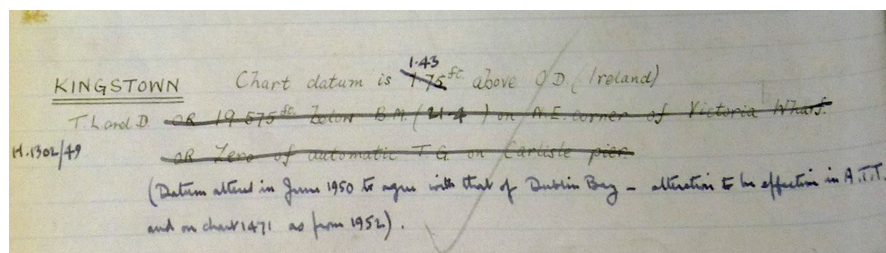 1·43
KINGSTOWN Chart datum is 1·75 ft above O.D. (Ireland)
T.L and D. OR 19·575 ft below B.M. (21·4) on N.E. corner of Victoria Wharf.
H.1302/49 OR Zero of automatic T.G. on Carlisle pier.
(Datum altered in June 1950 to agree with that of Dublin Bay – alteration to be effective in A.T.T.
and on chart 1471 as from 1952).